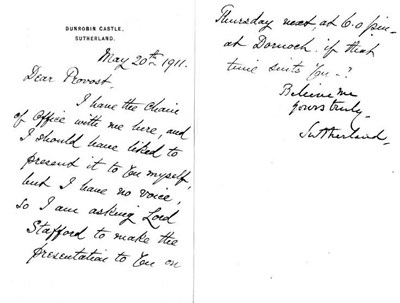 DUNROBIN CASTLE,
SUTHERLAND.
May 20th 1911.
Dear Provost.
I have the Chain
of Office with me here, and
I should have liked to
present it to you myself,
but I have no voice,
so I am asking Lord
Stafford to make the
presentation to you on
Thursday next, at 6.0 p.m.
at Dornoch. if that
time suits you-?
Believe me
yours truly-
Sutherland-